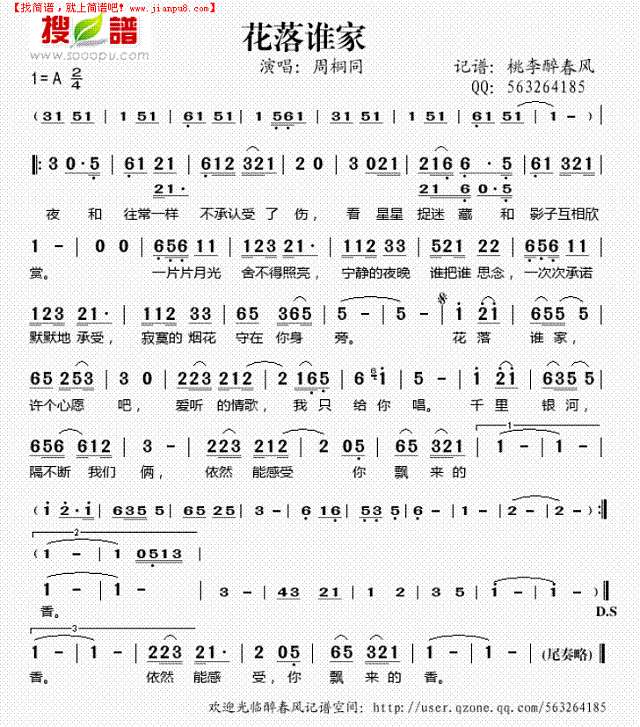 【找简谱，就上简谱吧！www.jianpu8.com】
搜谱
www.sooopu.com
花落谁家
演唱：周桐同
记谱：桃李醉春风
QQ: 563264185
1=A 2/4
(31 51 | 1 51 | 61 51 | 1 561 | 31 51 | 1 51 | 61 51 | 1 - )
‖: 3 0·5 | 61 21 | 612 321 | 2 0 | 3 021 | 216 6·5 | 61 321
21· 216 0·5
夜 和 往常一样 不承认受了伤， 看 星星 捉迷藏 和 影子互相欣
1 - | 0 0 | 656 11 | 123 21· | 112 33 | 521 22 | 656 11
赏。 一片片月光 舍不得照亮， 宁静的夜晚 谁把谁思念， 一次次承诺
123 21· | 112 33 | 65 365 | 5 - | 5 - | i 2i | 655 5
默默地承受， 寂寞的烟花 守在你身 旁。 花 落 谁家，
65 253 | 3 0 | 223 212 | 2 165 | 6 i | 5 - | i 2i | 635 5
许个心愿 吧， 爱听的情歌， 我只 给你 唱。 千里 银河，
656 612 | 3 - | 223 212 | 2 05 | 65 321 | 1 - | 1 -
1
隔不断我们 俩， 依然 能感受 你 飘来的
(i 2·i | 635 5 | 65 25 | 3 - | 6 16 | 53 5 | 6 - | 1 - | 2 - | 2 - ) :‖
2
(1 - | 1 0513 |
1 - | 1 - | 3 - | 43 21 | 1 2 | 3 - | 1 - | 1 - )‖
香。 D.S
3
1 - | 1 - | 223 21· | 2 05 | 65 321 | 1 - | 1 - | (尾奏略)‖
香。 依然 能感 受，你 飘来的 香。
欢迎光临醉春风记谱空间：http://user.qzone.qq.com/563264185